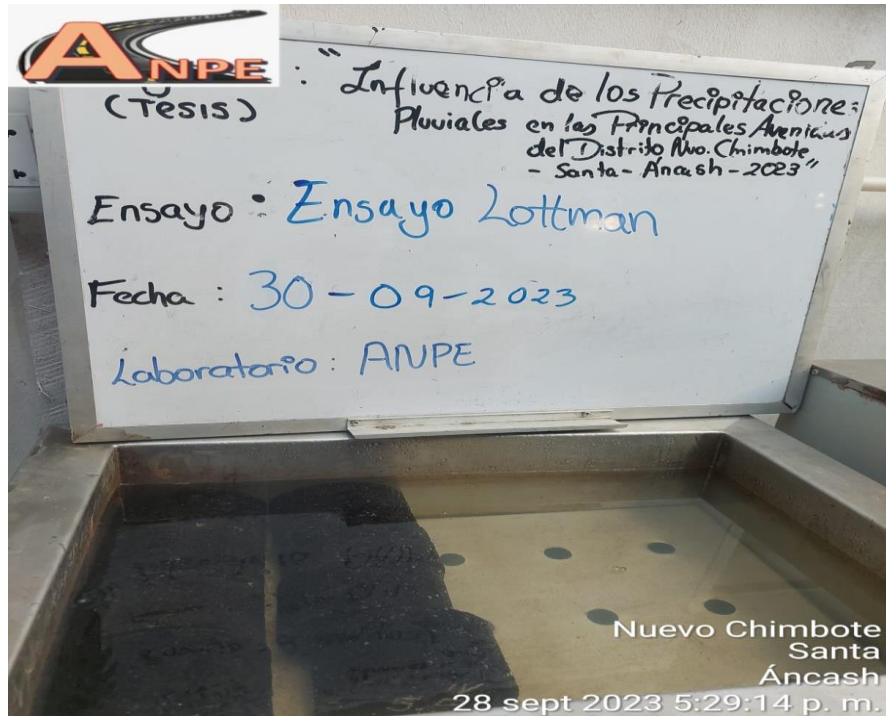 ANPE
(Tesis) : "Influencia de los Precipitacione:
Pluviales en las Principales Avenidas
del Distrito Nvo. Chimbote
- Santa - Ancash - 2023"
Ensayo : Ensayo Lottman
Fecha : 30-09-2023
Laboratorio : ANPE
Nuevo Chimbote
Santa
Áncash
28 sept 2023 5:29:14 p. m.